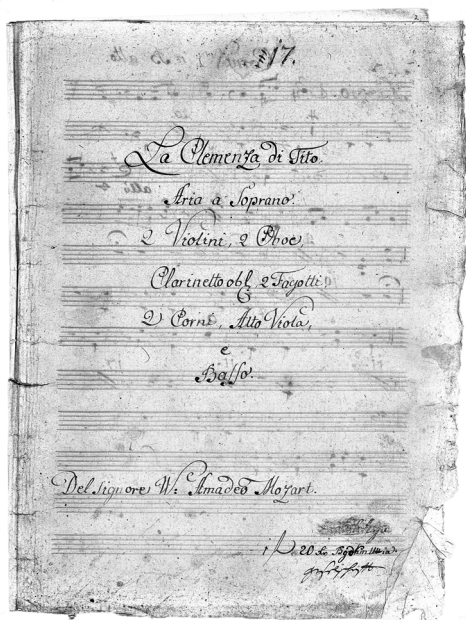 17.
La Clemenza di Tito.
Aria a Soprano.
2 Violini, 2 Oboe,
Clarinetto obl, 2 Fagotti
2 Corni, Alto Viola,
e
Basso.
Del Signore W: Amadeo Mozart.
20